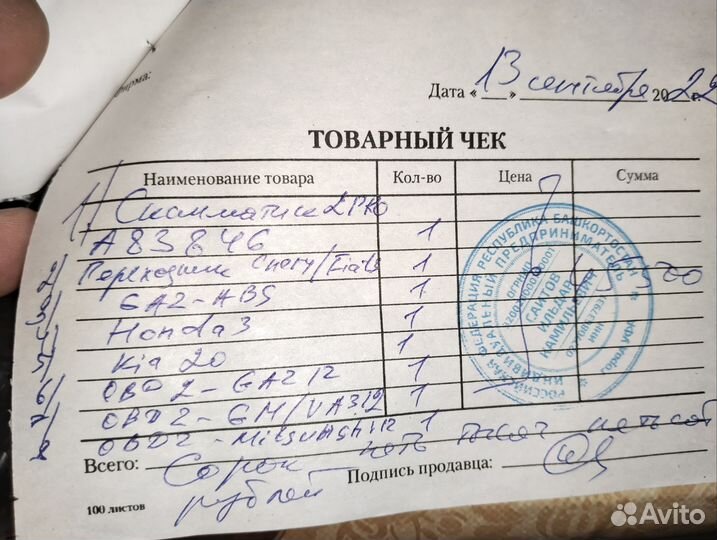 фирма:
Дата « 13 » сентября 2022 г.
ТОВАРНЫЙ ЧЕК
Наименование товара Кол-во Цена Сумма
1) Сканматик 2 PRO
A83846 1
Переходник Chery/Fiat 1
GAZ-ABS 1
Honda 3 1
Kia 20 1
OBD 2 - GAZ 12 1
OBD2 - GM/VAZ12 1
OBD2 - Mitsubishi 12 1
Всего: Сорок пять тысяч пятьсот
рублей
Подпись продавца:
100 листов
РОССИЙСКАЯ ФЕДЕРАЦИЯ РЕСПУБЛИКА БАШКОРТОСТАН
город Уфа
ИНДИВИДУАЛЬНЫЙ ПРЕДПРИНИМАТЕЛЬ
ОГРНИП
САИТОВ
ИЛЬДАР
КАМИЛЬЕВИЧ
ИНН
Avito